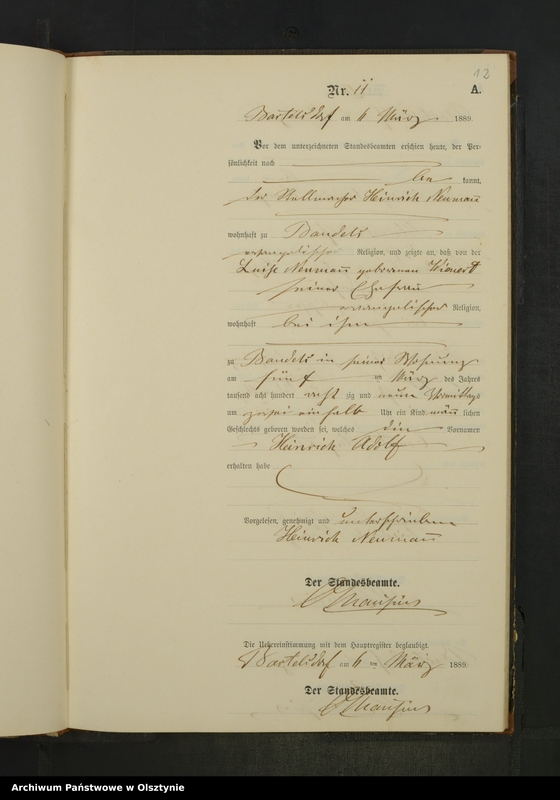 12
Nr. 11
A.
Bartelsdorf am 6 März 1889.
Vor dem unterzeichneten Standesbeamten erschien heute, der Per-
sönlichkeit nach
be kannt,
der Stellmacher Heinrich Neumann
wohnhaft zu Bandels
evangelischer Religion, und zeigte an, daß von der
Luise Neumann geborenen Wienert
seiner Ehefrau
evangelischer Religion,
wohnhaft bei ihm
zu Bandels in seiner Wohnung
am fünf ten März des Jahres
tausend acht hundert acht zig und neun Vormittags
um zwei ein halb Uhr ein Kind männ lichen
Geschlechts geboren worden sei, welches die Vornamen
Heinrich Adolf
erhalten habe
Vorgelesen, genehmigt und unterschrieben
Heinrich Neumann
Der Standesbeamte.
Die Uebereinstimmung mit dem Hauptregister beglaubigt.
Bartelsdorf am 6 ten März 1889.
Der Standesbeamte.
Archiwum Państwowe w Olsztynie